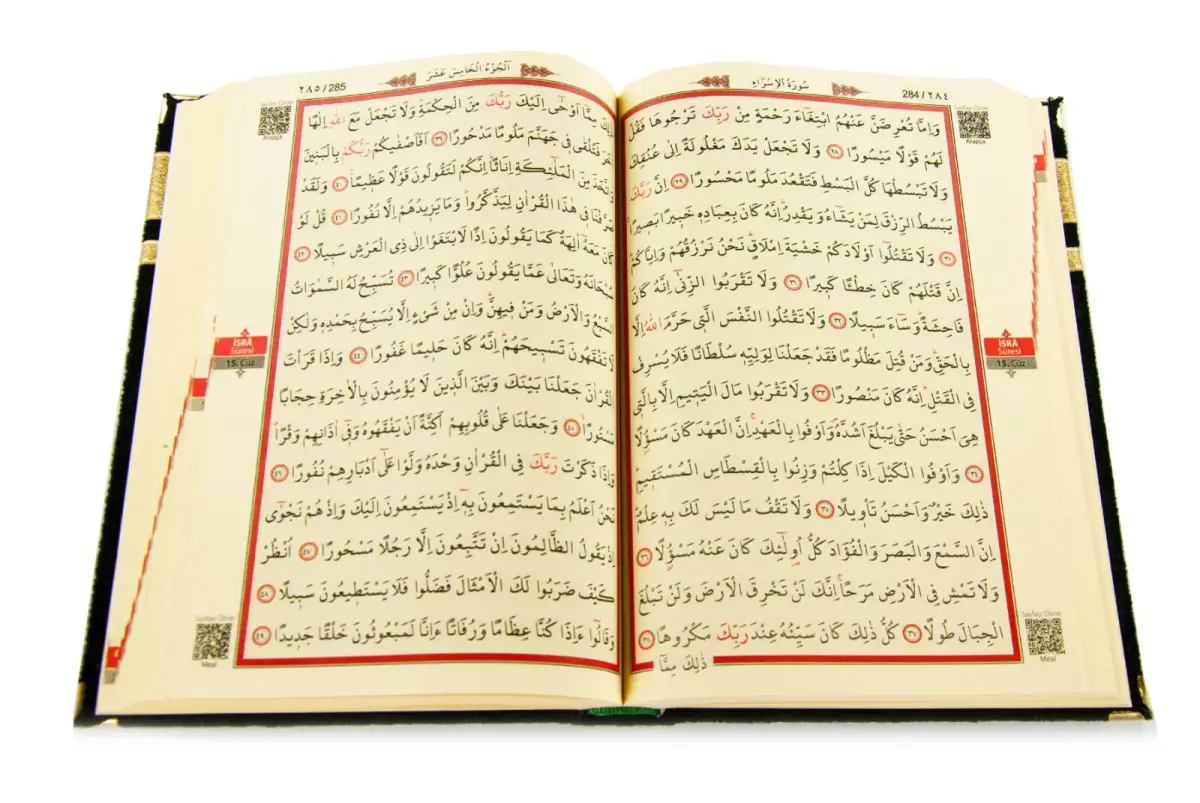 سُورَةُ الْاِسْرَاءِ
284/٢٨٤
Sayfayı Dinle
Arapça
وَاِمَّا تُعْرِضَنَّ عَنْهُمُ ابْتِغَٓاءَ رَحْمَةٍ مِنْ رَبِّكَ تَرْجُوهَا فَقُلْ
لَهُمْ قَوْلًا مَيْسُورًا ﴿٢٨﴾ وَلَا تَجْعَلْ يَدَكَ مَغْلُولَةً اِلٰى عُنُقِكَ
وَلَا تَبْسُطْهَا كُلَّ الْبَسْطِ فَتَقْعُدَ مَلُومًا مَحْسُورًا ﴿٢٩﴾ اِنَّ رَبَّكَ
يَبْسُطُ الرِّزْقَ لِمَنْ يَشَٓاءُ وَيَقْدِرُ اِنَّهُ كَانَ بِعِبَادِهٖ خَبِيرًا بَصِيرًا
﴿٣٠﴾ وَلَا تَقْتُلُٓوا اَوْلَادَكُمْ خَشْيَةَ اِمْلَاقٍ نَحْنُ نَرْزُقُهُمْ وَاِيَّاكُمْ
اِنَّ قَتْلَهُمْ كَانَ خِطْـًٔا كَبِيرًا ﴿٣١﴾ وَلَا تَقْرَبُوا الزِّنٰٓى اِنَّهُ كَانَ
فَاحِشَةً وَسَٓاءَ سَبِيلًا ﴿٣٢﴾ وَلَا تَقْتُلُوا النَّفْسَ الَّتِي حَرَّمَ اللّٰهُ اِلَّا
بِالْحَقِّ وَمَنْ قُتِلَ مَظْلُومًا فَقَدْ جَعَلْنَا لِوَلِيِّهٖ سُلْطَانًا فَلَا يُسْرِفْ
فِي الْقَتْلِ اِنَّهُ كَانَ مَنْصُورًا ﴿٣٣﴾ وَلَا تَقْرَبُوا مَالَ الْيَتِيمِ اِلَّا بِالَّتِي
هِيَ اَحْسَنُ حَتّٰى يَبْلُغَ اَشُدَّهُ وَاَوْفُوا بِالْعَهْدِ اِنَّ الْعَهْدَ كَانَ مَسْؤُلًا
﴿٣٤﴾ وَاَوْفُوا الْكَيْلَ اِذَا كِلْتُمْ وَزِنُوا بِالْقِسْطَاسِ الْمُسْتَقِيمِ
ذٰلِكَ خَيْرٌ وَاَحْسَنُ تَأْوِيلًا ﴿٣٥﴾ وَلَا تَقْفُ مَا لَيْسَ لَكَ بِهٖ عِلْمٌ
اِنَّ السَّمْعَ وَالْبَصَرَ وَالْفُؤَادَ كُلُّ اُو۬لٰٓئِكَ كَانَ عَنْهُ مَسْؤُلًا ﴿٣٦﴾
وَلَا تَمْشِ فِي الْاَرْضِ مَرَحًا اِنَّكَ لَنْ تَخْرِقَ الْاَرْضَ وَلَنْ تَبْلُغَ
الْجِبَالَ طُولًا ﴿٣٧﴾ كُلُّ ذٰلِكَ كَانَ سَيِّئُهُ عِنْدَ رَبِّكَ مَكْرُوهًا ﴿٣٨﴾
ذٰلِكَ مِمَّٓا
İSRÂ
Sûresi
15. Cüz
Sayfayı Dinle
Meal
٢٨٥/285
اَلْجُزْءُ الْخَامِسَ عَشَرَ
Sayfayı Dinle
Arapça
ذٰلِكَ مِمَّٓا اَوْحٰٓى اِلَيْكَ رَبُّكَ مِنَ الْحِكْمَةِ وَلَا تَجْعَلْ مَعَ اللّٰهِ اِلٰهًا
اٰخَرَ فَتُلْقٰى فِي جَهَنَّمَ مَلُومًا مَدْحُورًا ﴿٣٩﴾ اَفَاَصْفٰيكُمْ رَبُّكُمْ بِالْبَنِينَ
وَاتَّخَذَ مِنَ الْمَلٰٓئِكَةِ اِنَاثًا اِنَّكُمْ لَتَقُولُونَ قَوْلًا عَظِيمًا ﴿٤٠﴾ وَلَقَدْ
صَرَّفْنَا فِي هٰذَا الْقُرْاٰنِ لِيَذَّكَّرُوا وَمَا يَزِيدُهُمْ اِلَّا نُفُورًا ﴿٤١﴾ قُلْ لَوْ
كَانَ مَعَهُٓ اٰلِهَةٌ كَمَا يَقُولُونَ اِذًا لَابْتَغَوْا اِلٰى ذِي الْعَرْشِ سَبِيلًا ﴿٤٢﴾
سُبْحَانَهُ وَتَعَالٰى عَمَّا يَقُولُونَ عُلُوًّا كَبِيرًا ﴿٤٣﴾ تُسَبِّحُ لَهُ السَّمٰوَاتُ
السَّبْعُ وَالْاَرْضُ وَمَنْ فِيهِنَّ وَاِنْ مِنْ شَيْءٍ اِلَّا يُسَبِّحُ بِحَمْدِهٖ وَلٰكِنْ
لَا تَفْقَهُونَ تَسْبِيحَهُمْ اِنَّهُ كَانَ حَلِيمًا غَفُورًا ﴿٤٤﴾ وَاِذَا قَرَأْتَ
الْقُرْاٰنَ جَعَلْنَا بَيْنَكَ وَبَيْنَ الَّذِينَ لَا يُؤْمِنُونَ بِالْاٰخِرَةِ حِجَابًا
مَسْتُورًا ﴿٤٥﴾ وَجَعَلْنَا عَلٰى قُلُوبِهِمْ اَكِنَّةً اَنْ يَفْقَهُوهُ وَفِٓي اٰذَانِهِمْ وَقْرًا
وَاِذَا ذَكَرْتَ رَبَّكَ فِي الْقُرْاٰنِ وَحْدَهُ وَلَّوْا عَلٰٓى اَدْبَارِهِمْ نُفُورًا ﴿٤٦﴾
نَحْنُ اَعْلَمُ بِمَا يَسْتَمِعُونَ بِهٖٓ اِذْ يَسْتَمِعُونَ اِلَيْكَ وَاِذْ هُمْ نَجْوٰٓى
اِذْ يَقُولُ الظَّالِمُونَ اِنْ تَتَّبِعُونَ اِلَّا رَجُلًا مَسْحُورًا ﴿٤٧﴾ اُنْظُرْ
كَيْفَ ضَرَبُوا لَكَ الْاَمْثَالَ فَضَلُّوا فَلَا يَسْتَطِيعُونَ سَبِيلًا ﴿٤٨﴾
وَقَالُٓوا ءَاِذَا كُنَّا عِظَامًا وَرُفَاتًا ءَاِنَّا لَمَبْعُوثُونَ خَلْقًا جَدِيدًا ﴿٤٩﴾
İSRÂ
Sûresi
15. Cüz
Sayfayı Dinle
Meal